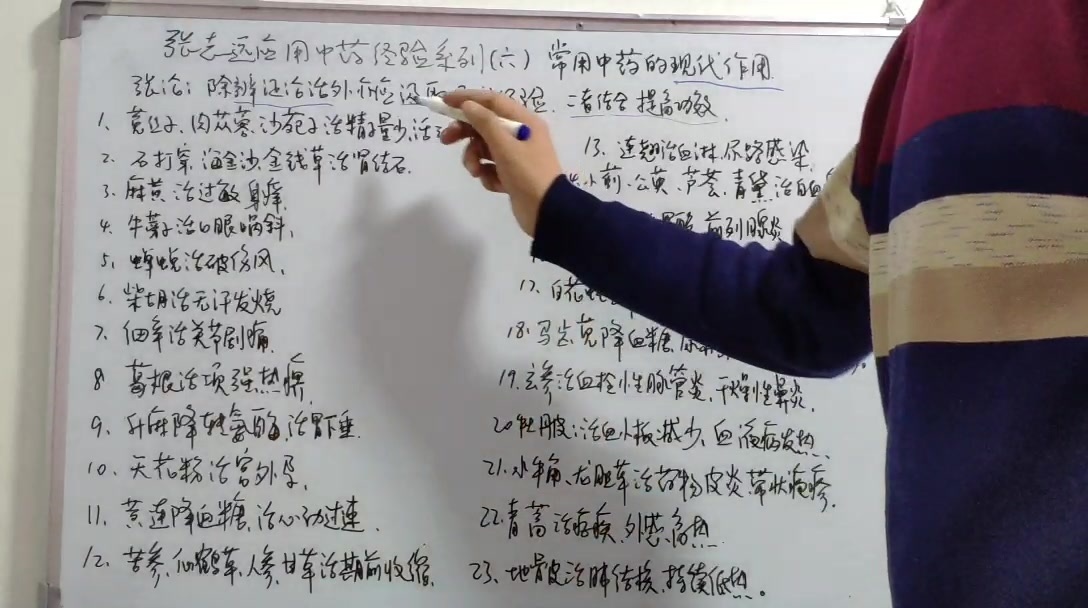 张志远应用中药经验系列(六) 常用中药的现代作用
张论:除辨证论治外 经验、二者结合 提高功效、
1、菟丝子、肉苁蓉、沙苑子治精子量少、活
2、石打穿、海金沙、金钱草治肾结石.
3、麻黄治过敏身痒,
4、牛蒡子治口眼喎斜、
5、蝉蜕治破伤风、
6、柴胡治无汗发烧
7、细辛治关节剧痛.
8 葛根治项强热痹
9、升麻降转氨酶,治胃下垂.
10、天花粉治宫外孕,
11、黄连降血糖,治心动过速.
12、苦参、仙鹤草、人参、甘草治期前收缩,
13、连翘治血淋.尿路感染、
公英、芦荟、青黛治白血
前列腺炎
17、白花蛇
18、马齿苋降血糖,尿
19、玄参治血栓性脉管炎,干燥性鼻炎、
20 牡丹皮:治血小板减少、血液病发热、
21、水牛角、龙胆草治药物皮炎、带状疱疹.
22、青蒿治疟疾、外感高热
23、地骨皮治肺结核、持续低热。